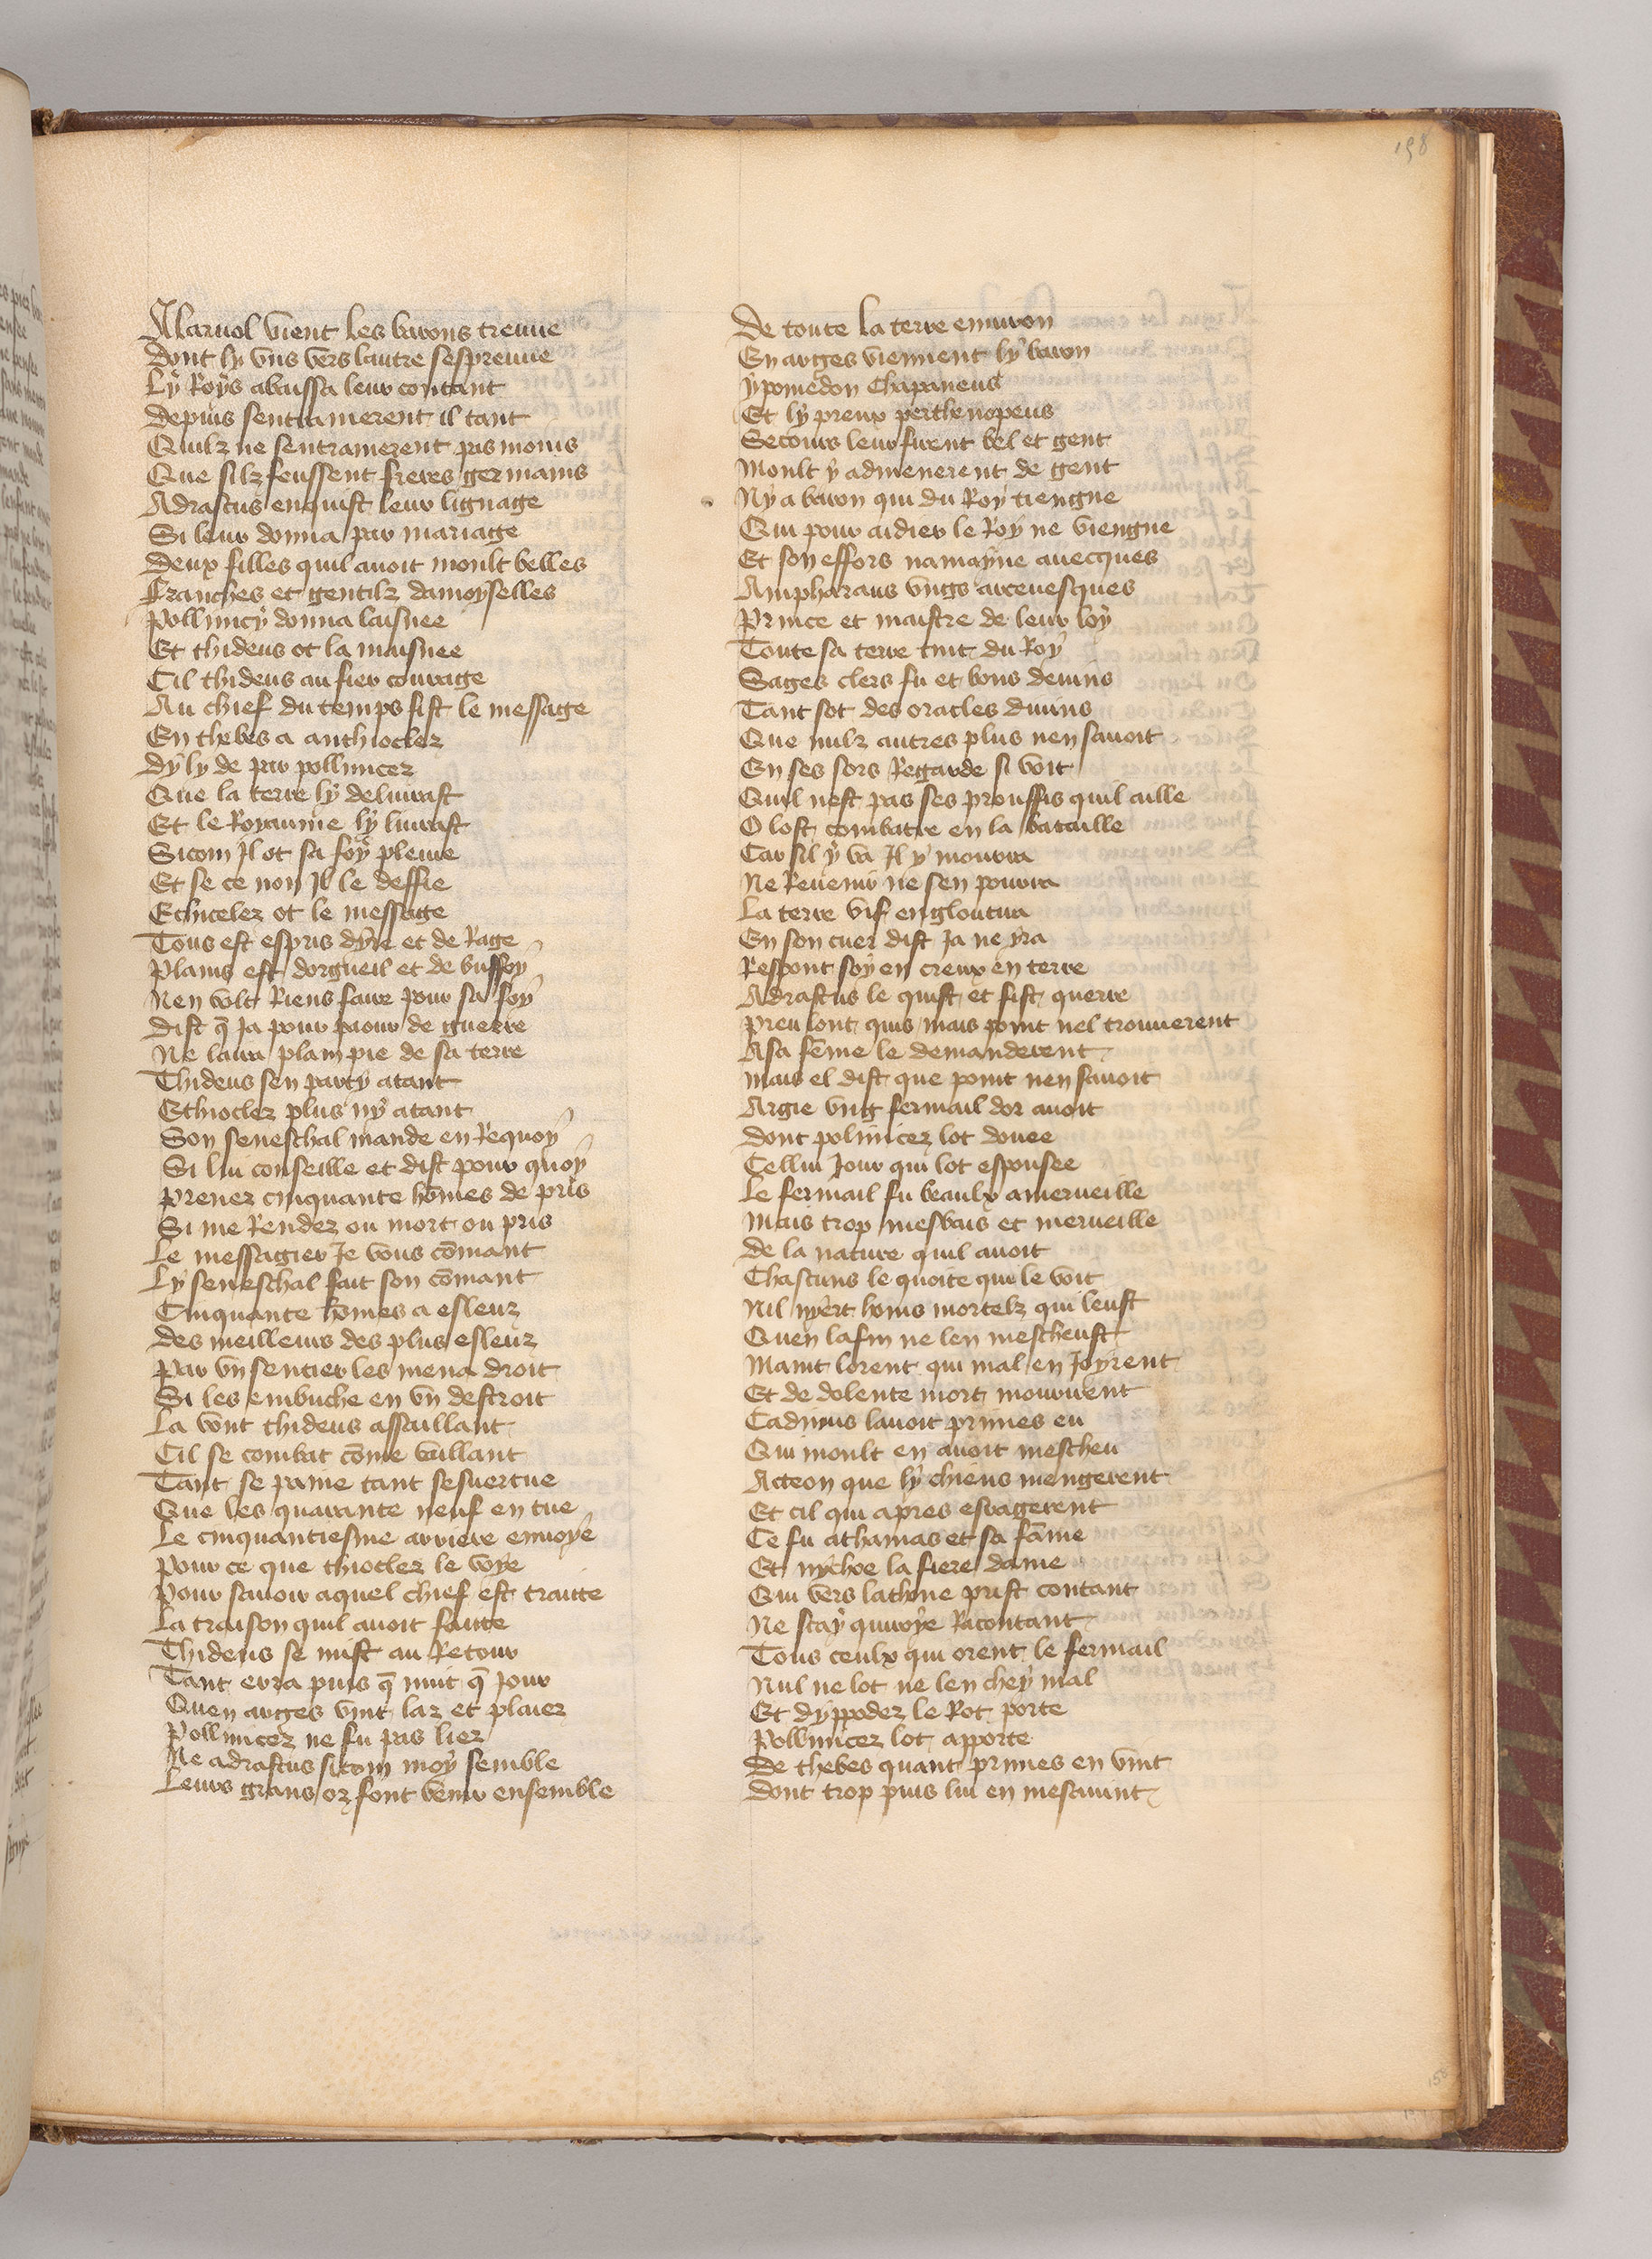 158
Alaruol vient les barons treuue
Dont ly vns vers lautre sespreuue
Ly Roys abaissa leur contant
Depuis sentramerent il tant
Quilz ne sentramerent pas moins
Que silz feussent freres germains
Adrastus enquist leur lignage
Si leur donna par mariage
Deux filles quil auoit moult belles
Franches et gentilz damoyselles
Pollinicy donna laisnee
Et thideus ot la maisnee
Cil thideus au fier courage
Au chief du temps fist le message
En thebes a anthioclez
Dy ly de par pollinicez
Que la terre ly deliurast
Et le Royaume ly liurast
Sicom Il ot sa foy pleuie
Et se ce non Il le deffie
Ethicelez ot le message
Tous est espris dyre et de Rage
Plains est dorgueil et de buffoy
Nen volt Riens faire pour sa foy
Dist q̄ Ja pour paour de guerre
Ne laura plain pie de sa terre
Thideus sen party atant
Ethioclez plus ny atant
Son seneschal mande en Requoy
Si lui conseille et dist pour quoy
Prenez cinquante hōmes de pris
Si me Rendez ou mort ou pris
Le messagier Je vous cōmant
Ly seneschal fait son cōmant
Cinquante hōmes a esleuz
Des meilleurs des plus esleuz
Par vn sentier les mena droit
Si les embuche en vn destroit
La vont thideus assaillant
Cil se combat cōme vaillant
Tant se paine tant sesuertue
Que les quarante neuf en tue
Le cinquantiesme arriere enuoye
Pour ce que thioclez le voye
Pour sauoir aquel chief est traite
La traison quil auoit faite
Thideus se mist au Retour
Tant erra puis q̄ nuit q̄ Jour
Quen arges vint laz et plaiez
Pollinicez ne fu pas liez
Ne adrastus sicom moy semble
Leurs grans oz font venir ensemble
De toute la terre enuiron
En arges viennent ly baron
Ypomedon Chapaneus
Et ly preux perthenopeus
Secours leur firent bel et gent
Moult y admenerent de gent
Ny a baron qui du Roy tiengne
Qui pour aidier le Roy ne viengne
Et son effors namayne auecques
Ampharaus vngs arceuesques
Prince et maistre de leur loy
Toute sa terre tint du Roy
Sages clers fu et bons deuins
Tant sot des oracles diuins
Que nulz autres plus nen sauoit
En ses sors Regarde si voit
Quil nest pas ses prouffis quil aille
O lost combatre en la bataille
Car sil y va Il y mourra
Ne Reuenir ne sen pourra
La terre vif engloutira
En son cuer dist Ja ne yra
Respont soy en creux en terre
Adrastus le quist et fist querre
Preu lont quis mais point nel trouuerent
Asa fēme le demanderent
Mais el dist que point nen sauoit
Argie vng fermail dor auoit
Dont polinicez lot douee
Cellui Jour qui lot espousee
Le fermail fu beaulx amerueille
Mais trop mesvais et merueille
De la nature quil auoit
Chascuns le quoite qui le voit
Nil nyert homs mortelz qui leust
Quen lafin ne len mescheust
Maint lorent qui mal en Joyrent
Et de dolente mort moururent
Cadmus lauoit primes eu
Qui moult en auoit mescheu
Acteon que ly chiens mengerent
Et cil qui apres esragerent
Ce fu athamas et sa fāme
Et nychoe la fiere dame
Qui vers lathone prist contant
Ne scay quiroye Racontant
Tous ceulx qui orent le fermail
Nul ne lot ne len chey mal
Et dyppodez le Rot porte
Pollinicez lot apporte
De thebes quant primes en vint
Dont trop puis lui en mesauint